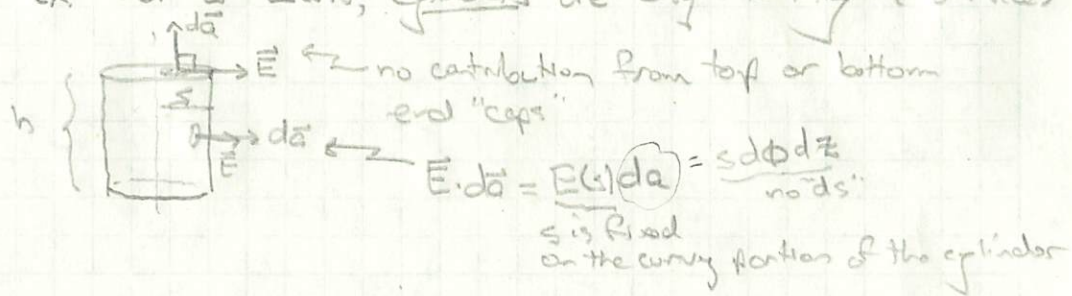 da⃗
E⃗ no contribution from top or bottom
s end "caps"
h
da⃗
E⃗
E⃗·da⃗ = E(s) da = s dΦ dz
no "ds"
s is fixed
on the curvy portion of the cylinder